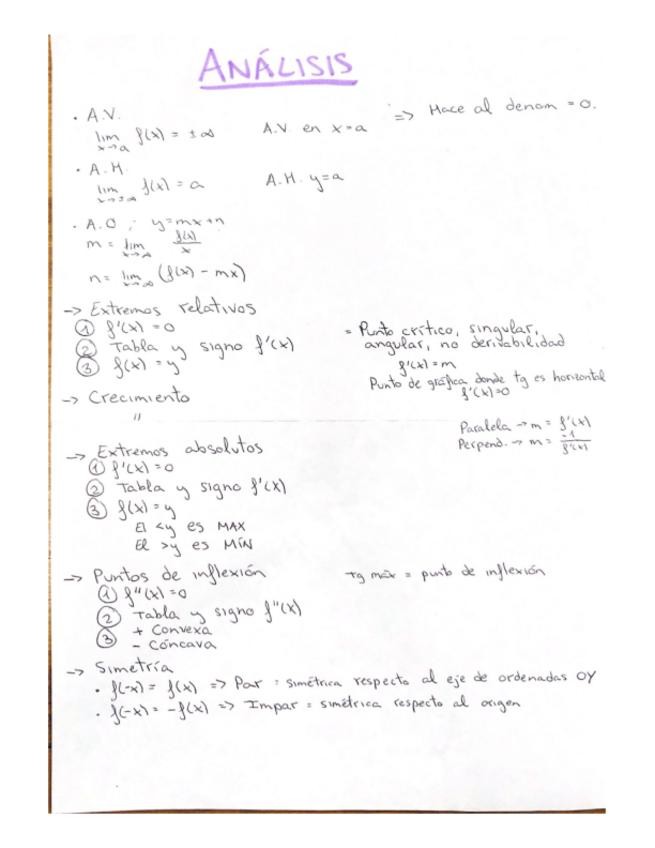 ANÁLISIS
· A.V.
lim x→a f(x) = ±∞ A.V. en x=a => Hace al denom = 0.
· A.H.
lim x→±∞ f(x) = a A.H. y=a
· A.O : y=mx+n
m = lim x→∞ f(x)/x
n = lim x→∞ (f(x) - mx)
→ Extremos relativos
① f'(x) = 0
② Tabla y signo f'(x)
③ f(x) = y
= Punto crítico, singular,
angular, no derivabilidad
f'(x) = m
Punto de gráfica donde tg es horizontal
f'(x)=0
→ Crecimiento
"
Paralela → m = f'(x)
Perpend. → m = -1/f'(x)
→ Extremos absolutos
① f'(x) = 0
② Tabla y signo f'(x)
③ f(x) = y
El <y es MAX
El >y es MÍN
→ Puntos de inflexión
tg máx = punto de inflexión
① f''(x) = 0
② Tabla y signo f''(x)
③ + Convexa
- Cóncava
→ Simetría
· f(-x) = f(x) => Par = simétrica respecto al eje de ordenadas OY
· f(-x) = -f(x) => Impar = simétrica respecto al origen